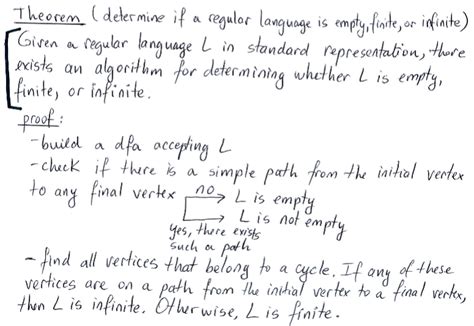 Theorem (determine if a regular language is empty, finite, or infinite)
Given a regular language L in standard representation, there
exists an algorithm for determining whether L is empty,
finite, or infinite.
proof:
-build a dfa accepting L
-check if there is a simple path from the initial vertex
to any final vertex no L is empty
L is not empty
yes, there exists
such a path
- find all vertices that belong to a cycle. If any of these
vertices are on a path from the initial vertex to a final vertex,
then L is infinite. Otherwise, L is finite.